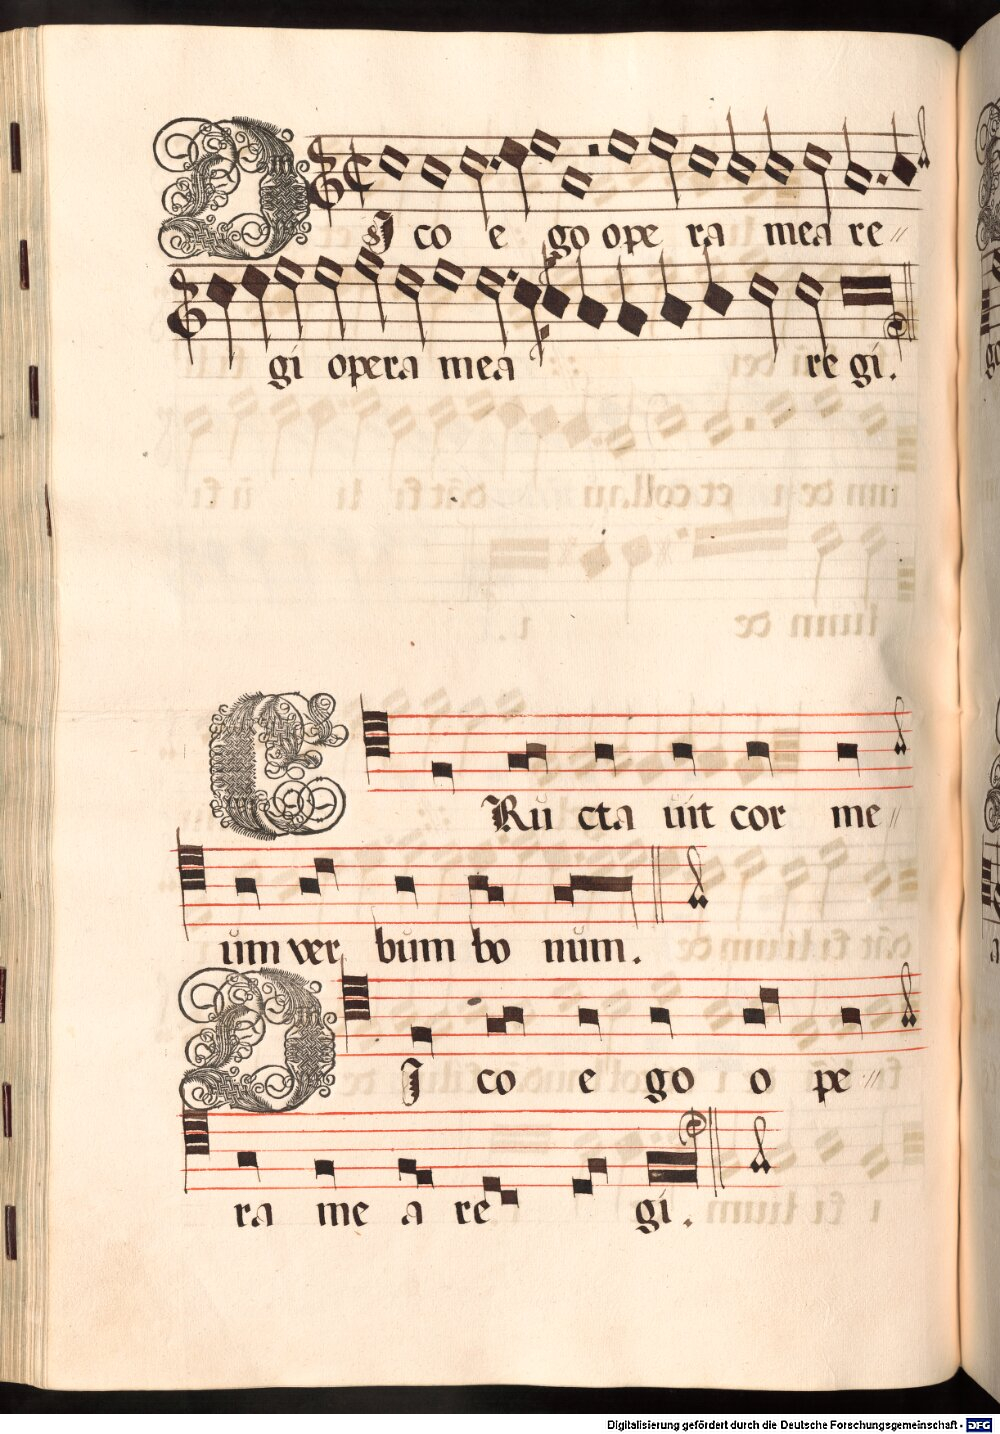 DJ co e go ope ra mea re//
gi opera mea re gi.
ERu cta uit cor me//
um ver bum bo num.
DJ co e go o pe //
ra me a re gi.
Digitalisierung gefördert durch die Deutsche Forschungsgemeinschaft - DFG